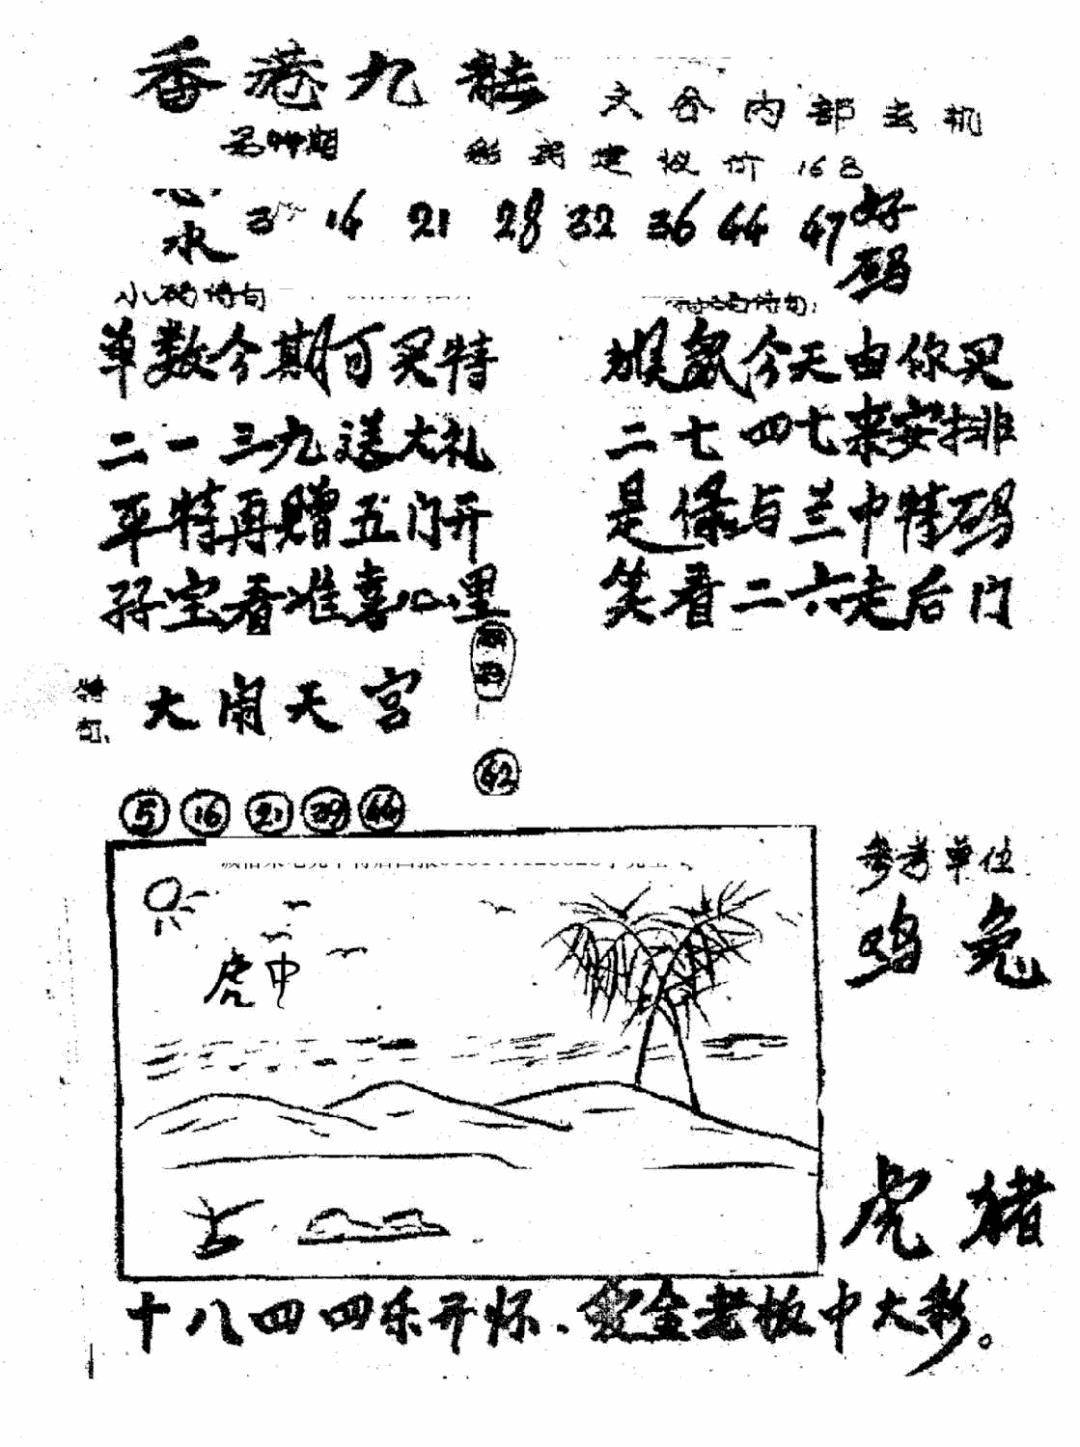 香港九龍
内部玄机
建议价168
心水 3 14 21 28 32 36 44 47 好码
小码诗句
单数今期可买特
二一三九送大礼
平特再赠五门开
孖宝看准喜心里
猴鼠今天由你买
二七四七来安排
是绿与兰中特码
笑看二六走后门
大闹天宫
42
5 16 21 39 44
参考单位
鸡兔
虎中
虎猪
十八四四乐开怀、
老板中大彩。